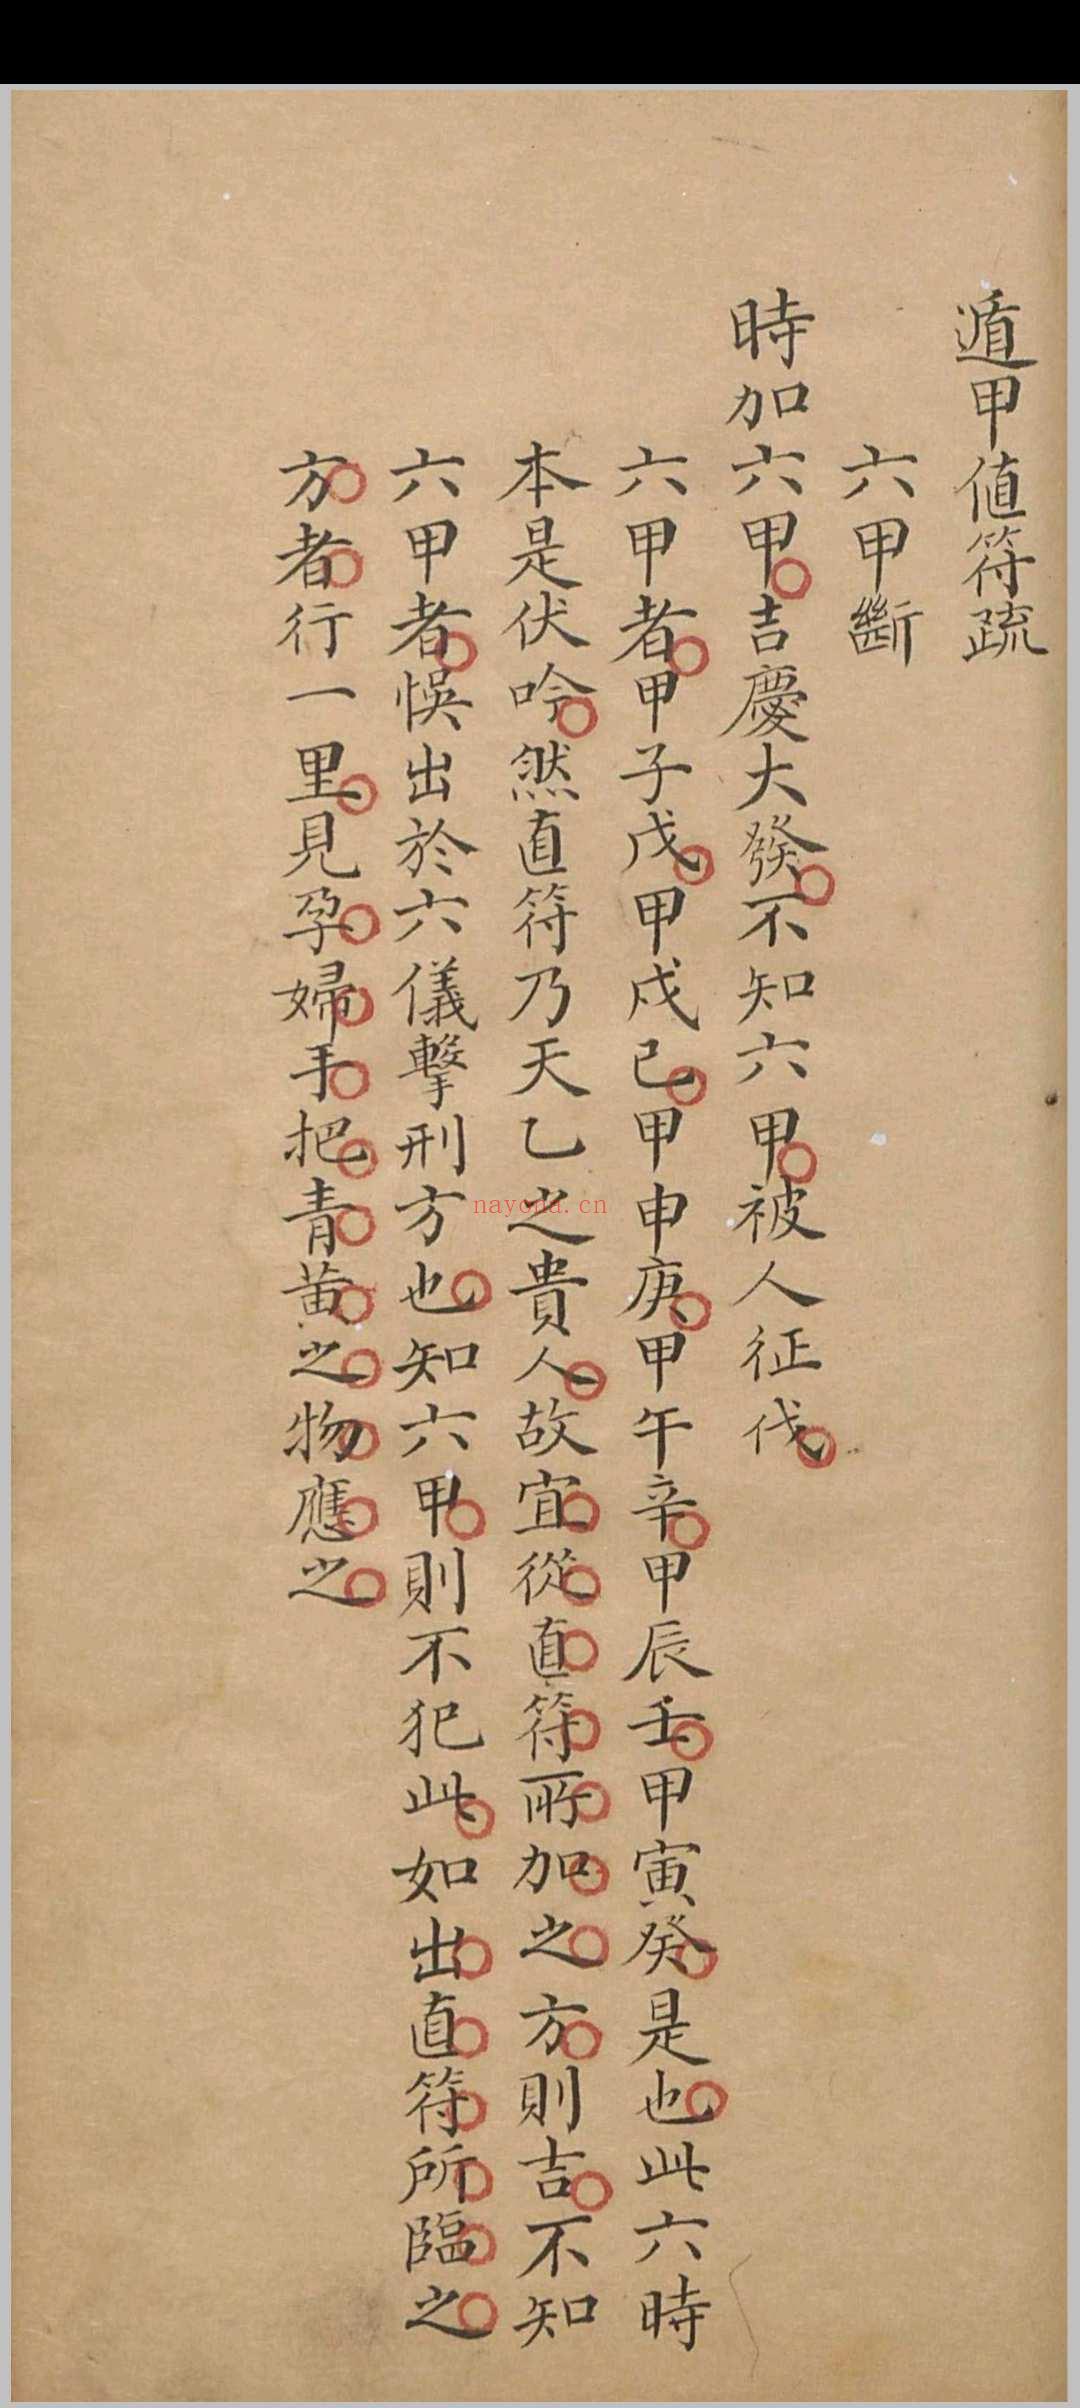 遁甲値符疏
六甲斷
時加六甲吉慶大發不知六甲被人征伐
六甲者甲子戊甲戍己甲申庚甲午辛甲辰壬甲寅癸是也此六時
本是伏吟然直符乃天乙之貴人故宜從直符所加之方則吉不知
六甲者悞出於六儀擊刑方也知六甲則不犯此如出直符所臨之
方者行一里見孕婦手把青黃之物應之
nayona.cn